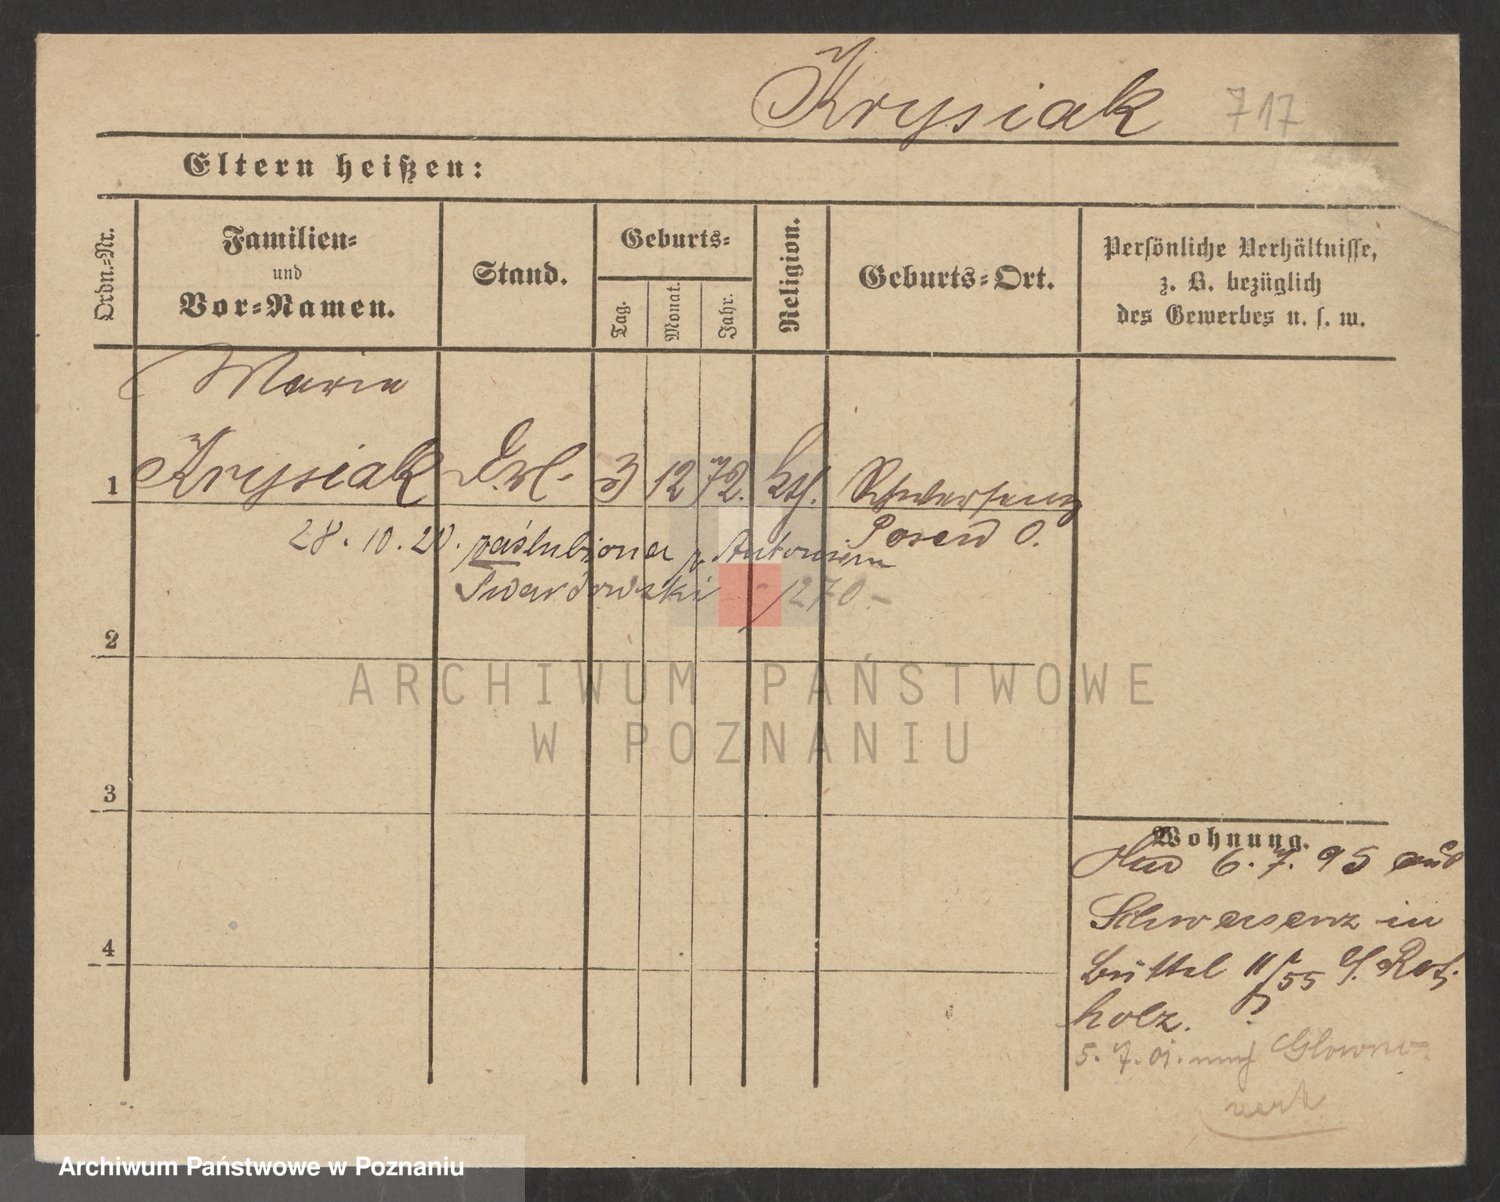 Krysiak 717
Eltern heißen:
Ordn.-Nr.
Familien-
und
Vor-Namen.
Stand.
Geburts-
Tag.
Monat.
Jahr.
Religion.
Geburts-Ort.
Persönliche Verhältnisse,
z. B. bezüglich
des Gewerbes u. s. w.
Maria
1 Krysiak 3 12 72. kth. Schwersenz
Posen O.
28.10.20. zaślubiona z Antonim
Swardowski - 1270 -
2
3
4
Wohnung.
6.7.95 aus
Schwersenz in
Büttel 11/55
holz.
5.7.01. nach Glowno
verh
ARCHIWUM PAŃSTWOWE
W POZNANIU
Archiwum Państwowe w Poznaniu